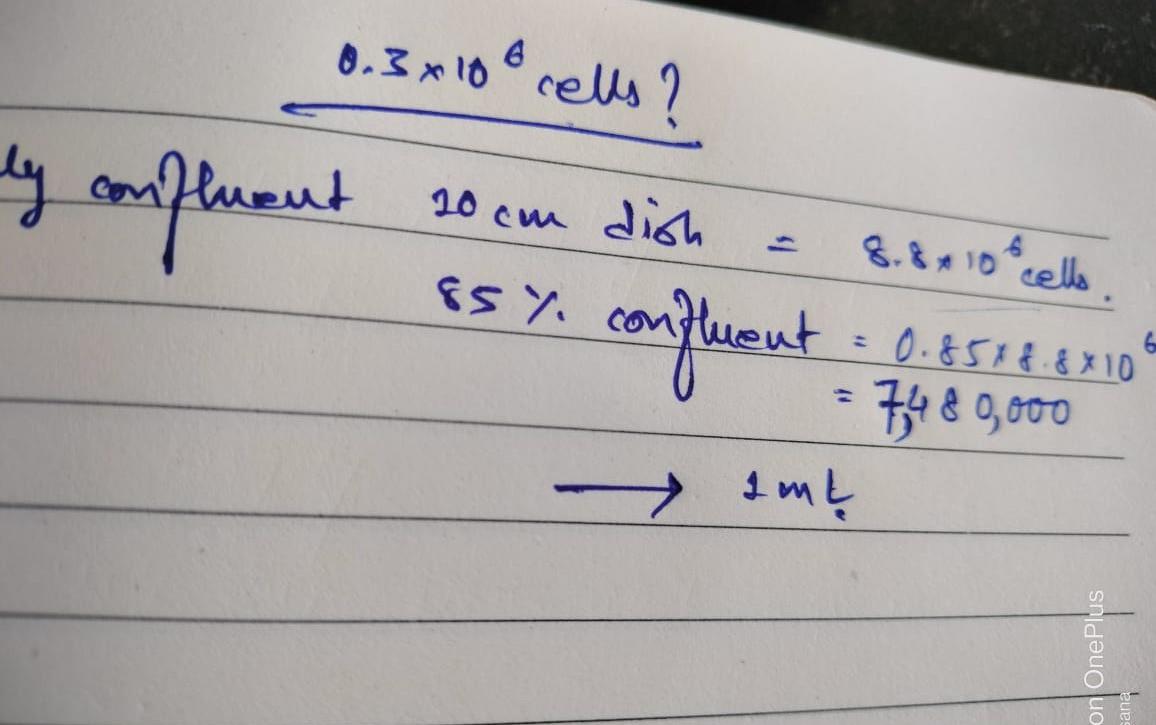 0.3×10⁶ cells?
ly confluent 10 cm dish = 8.8×10⁶ cells.
85% confluent = 0.85×8.8×10⁶
= 7,480,000
→ 1 mL.
on OnePlus
sana